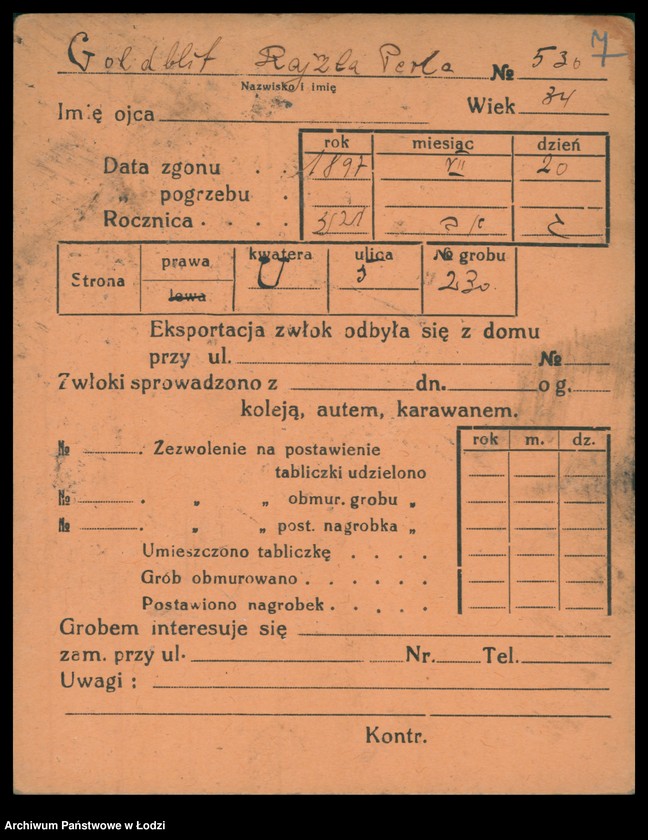 Goldblit Rajzla Perla № 530 7
Nazwisko i imię
Imię ojca Wiek 34
rok miesiąc dzień
Data zgonu . . 1897 VII 20
„ pogrzebu .
Rocznica . . . .
Strona prawa lewa kwatera U ulica 5 № grobu 230
Eksportacja zwłok odbyła się z domu
przy ul. №
Zwłoki sprowadzono z dn. o g.
koleją, autem, karawanem.
rok m. dz.
№ . Zezwolenie na postawienie
tabliczki udzielono
№ . „ „ obmur. grobu „
№ . „ „ post. nagrobka „
Umieszczono tabliczkę . . . .
Grób obmurowano . . . . . .
Postawiono nagrobek . . . . .
Grobem interesuje się
zam. przy ul. Nr. Tel.
Uwagi :
Kontr.
Archiwum Państwowe w Łodzi